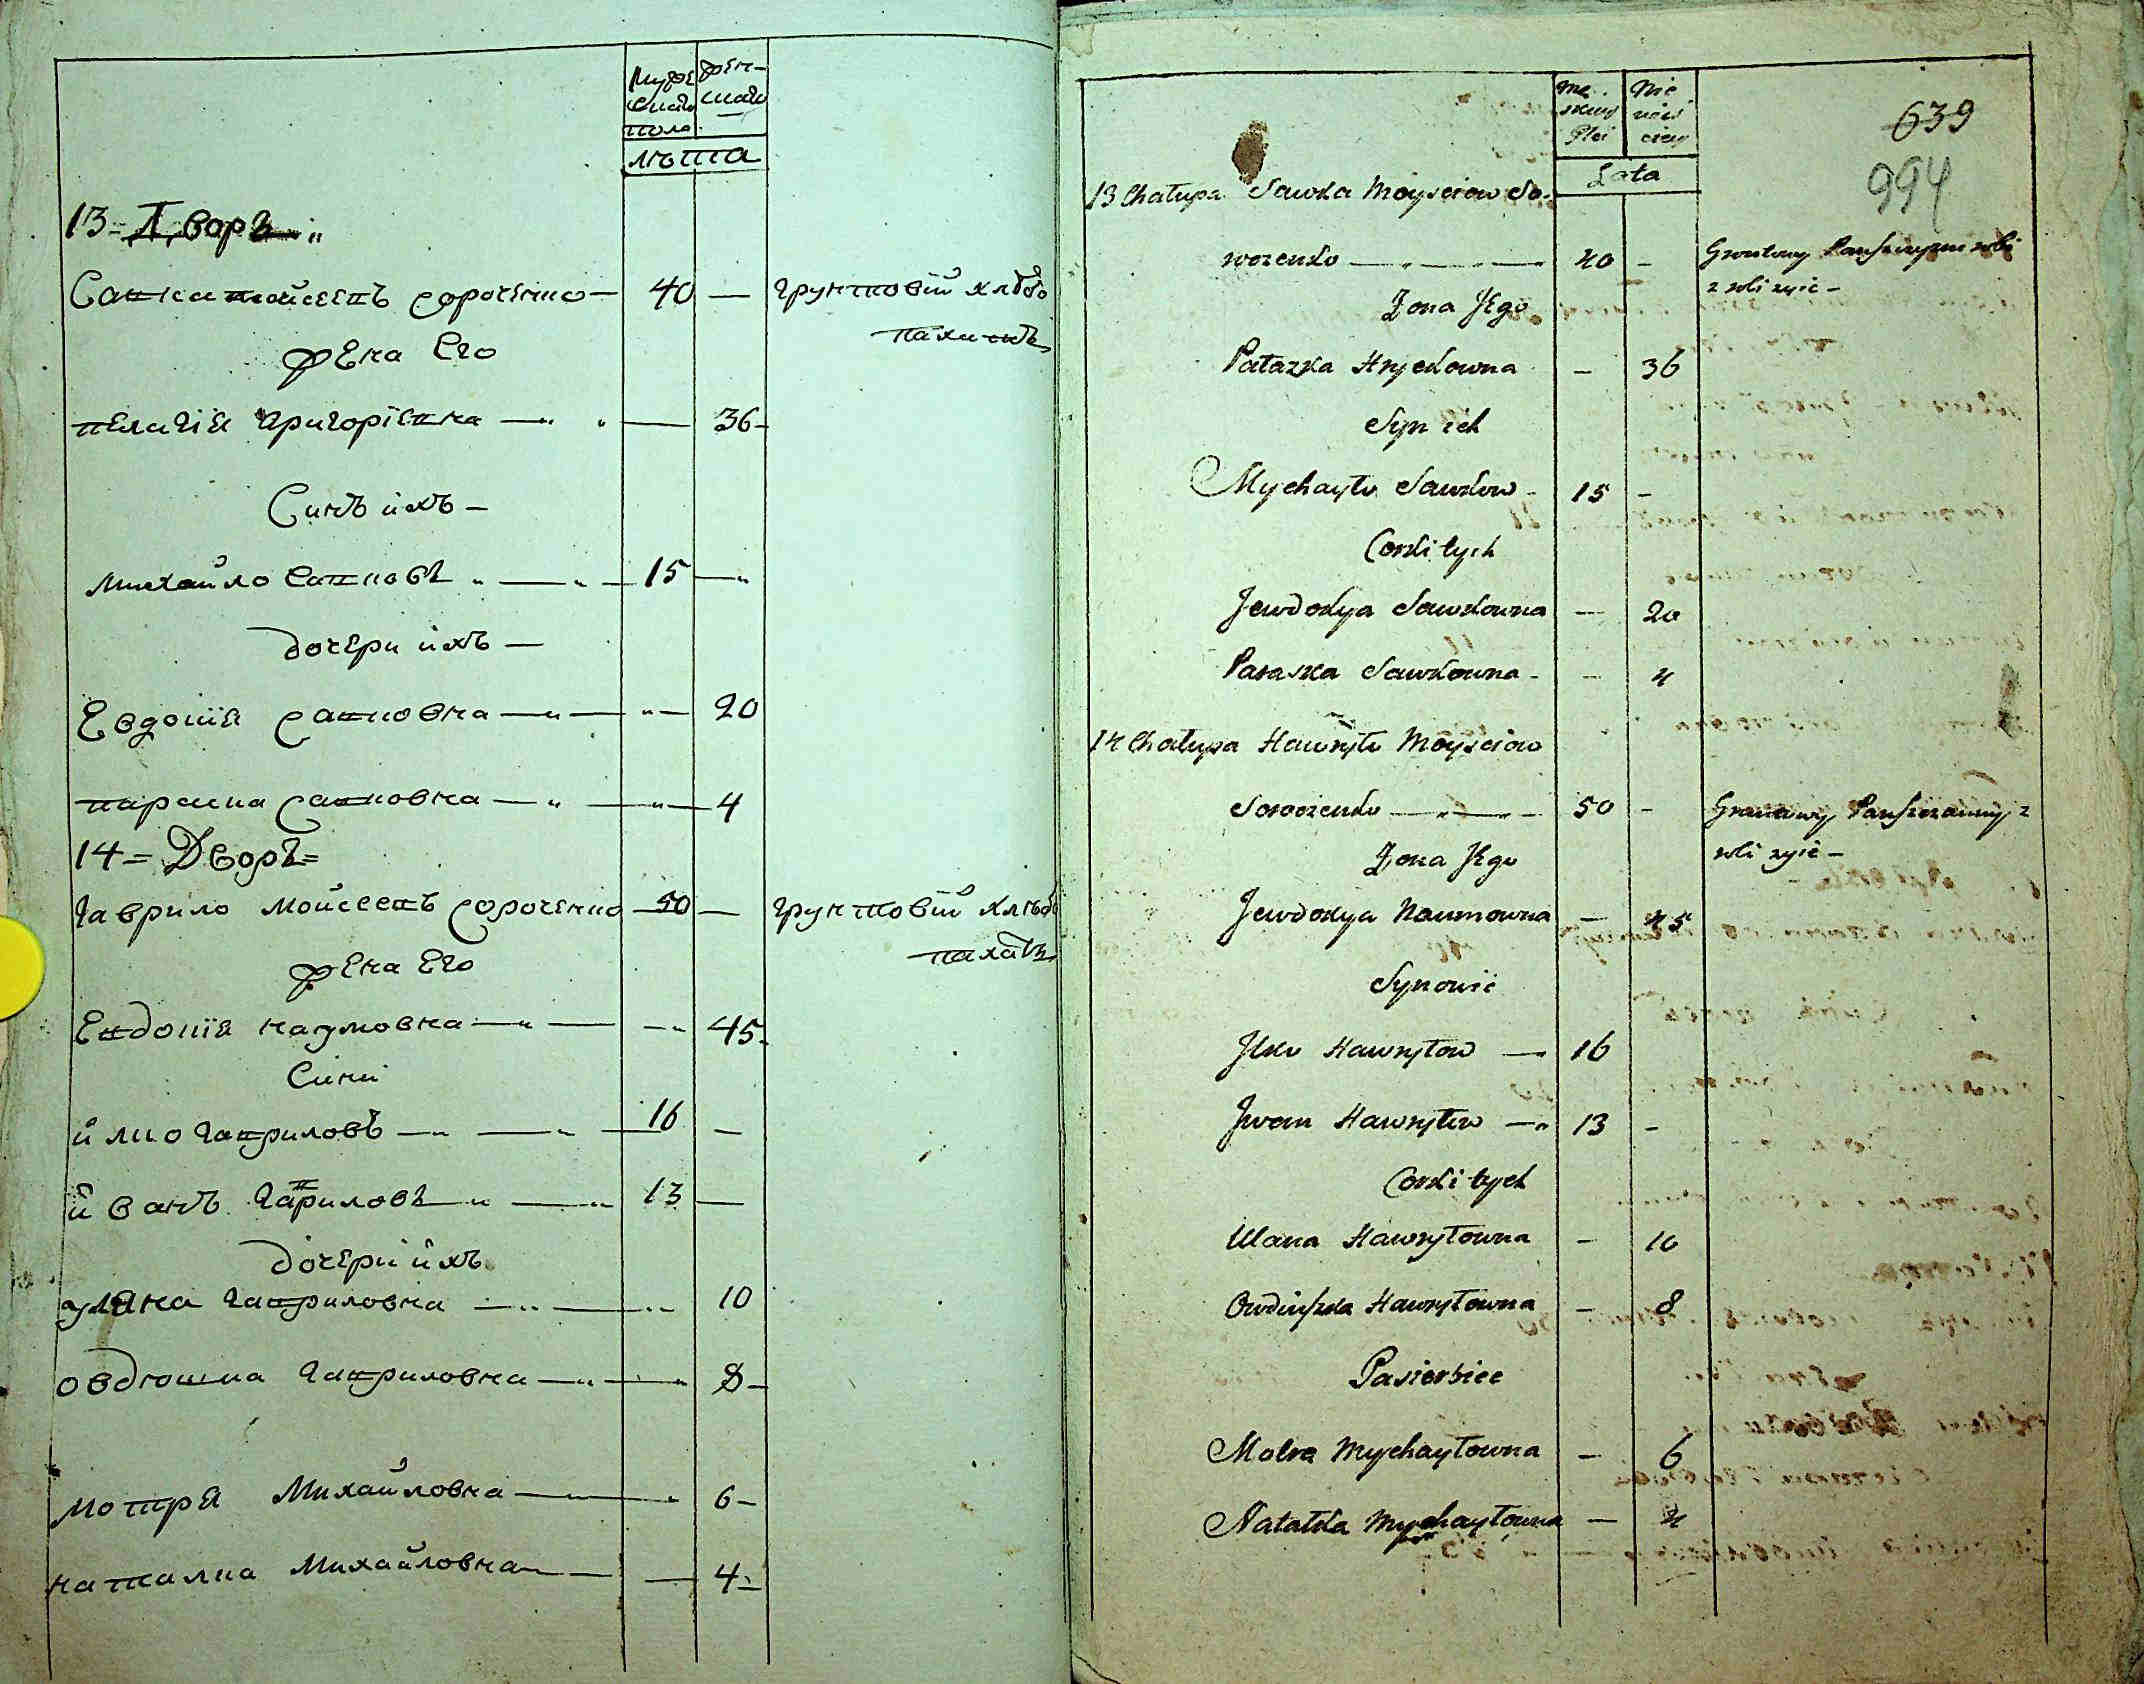 Мужеска поло
женска
лѣта
13 = Дворъ
Савка мойсеевъ сороченко — 40 — грунтовій хлѣбо
пахатъ
жена Его
пелагіа григоріевна — 36
Синъ ихъ —
михайло савковъ — 15 —
дочери ихъ —
Евдокіа савковна — 20
параска савковна — 4
14 = Дворъ =
гаврило мойсеевъ сороченко 50 — грунтовій хлѣбо
пахатъ
жена Его
Евдокіа наумовна — 45
Сини
илко гавриловъ — 16 —
иванъ гавриловъ — 13 —
дочери ихъ
уляна гавриловна — 10
овдюшка гавриловна — 8
мотря михайловна — 6
наталка михайловна — 4
Męskiey Płci
Niewieściey
Lata
639
994
13 Chałupa Sawka Moysciow So-
roczenko — 40 — Gruntowy Panszczyzne robi
z roli żyie —
Żona Jego
Pałazka Hryckowna — 36
Syn ich
Mychayło Sawkow — 15 —
Corki tych
Jewdokya Sawkowna — 20
Paraska Sawkowna — 4
14 Chałupa Hawryło Moysciow
Soroczenko — 50 — Gruntowy Panszczanny z
roli żyie —
Żona Jego
Jewdokya Naumowna — 45
Synowie
Jlko Hawryłow — 16
Jwan Hawryłow — 13 —
Corki tych
Ulana Hawryłowna — 10
Owdiuszka Hawryłowna — 8
Pasierbice
Motra Mychayłowna — 6
Natałka Mychayłowna — 4